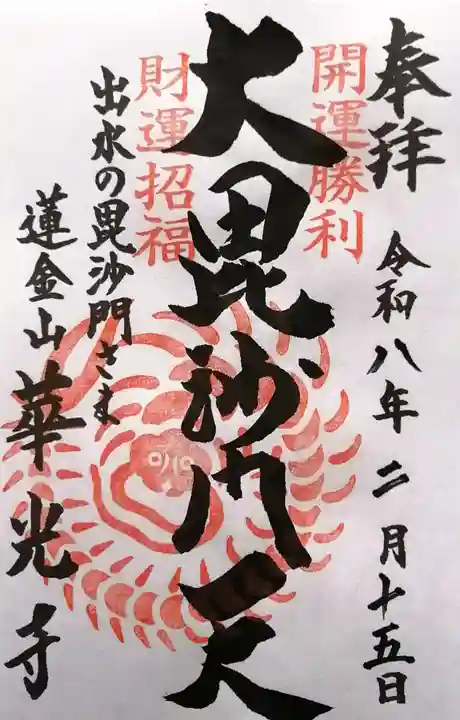 奉拝
令和八年二月十五日
開運勝利
大毘沙門天
財運招福
出水の毘沙門さま
蓮金山華光寺